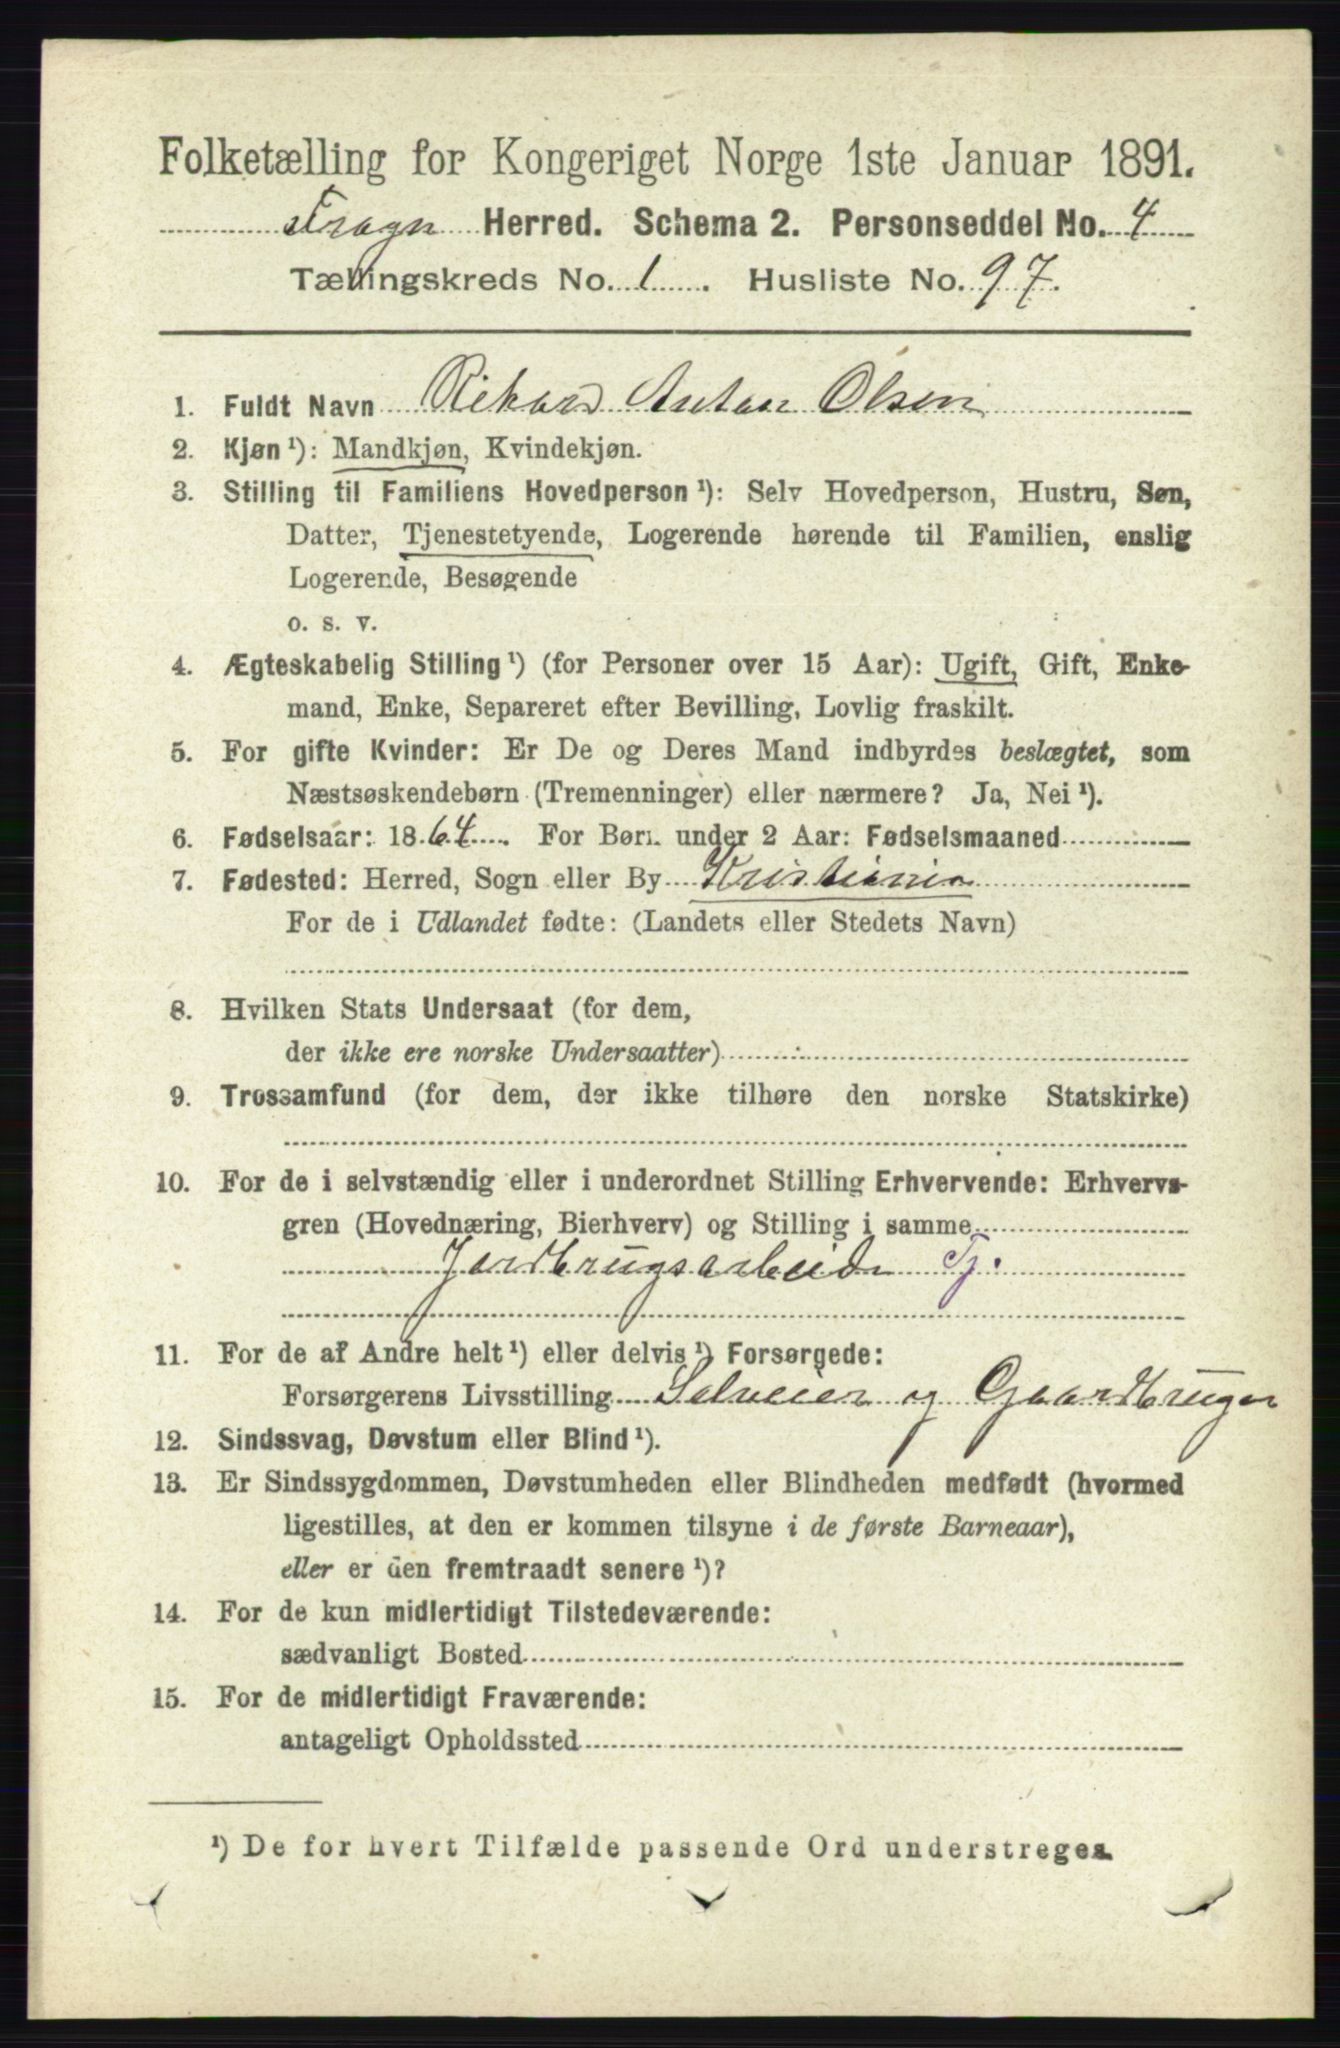 Folketælling for Kongeriget Norge 1ste Januar 1891.
Frogn Herred. Schema 2. Personseddel No. 4
Tællingskreds No. 1. Husliste No. 97.
1. Fuldt Navn Rikard Anton Olsen
2. Kjøn¹): Mandkjøn, Kvindekjøn.
3. Stilling til Familiens Hovedperson¹): Selv Hovedperson, Hustru, Søn,
Datter, Tjenestetyende, Logerende hørende til Familien, enslig
Logerende, Besøgende
o. s. v.
4. Ægteskabelig Stilling¹) (for Personer over 15 Aar): Ugift, Gift, Enke-
mand, Enke, Separeret efter Bevilling, Lovlig fraskilt.
5. For gifte Kvinder: Er De og Deres Mand indbyrdes beslægtet, som
Næstsøskendebørn (Tremenninger) eller nærmere? Ja, Nei¹).
6. Fødselsaar: 1864. For Børn under 2 Aar: Fødselsmaaned
7. Fødested: Herred, Sogn eller By Kristiania
For de i Udlandet fødte: (Landets eller Stedets Navn)
8. Hvilken Stats Undersaat (for dem,
der ikke ere norske Undersaatter)
9. Trossamfund (for dem, der ikke tilhøre den norske Statskirke)
10. For de i selvstændig eller i underordnet Stilling Erhvervende: Erhvervs-
gren (Hovednæring, Bierhverv) og Stilling i samme
Jordbrugsarbeide Tj.
11. For de af Andre helt¹) eller delvis¹) Forsørgede:
Forsørgerens Livsstilling Selveier og Gaardbruger
12. Sindssvag, Døvstum eller Blind¹).
13. Er Sindssygdommen, Døvstumheden eller Blindheden medfødt (hvormed
ligestilles, at den er kommen tilsyne i de første Barneaar),
eller er den fremtraadt senere¹)?
14. For de kun midlertidigt Tilstedeværende:
sædvanligt Bosted
15. For de midlertidigt Fraværende:
antageligt Opholdssted
¹) De for hvert Tilfælde passende Ord understreges.